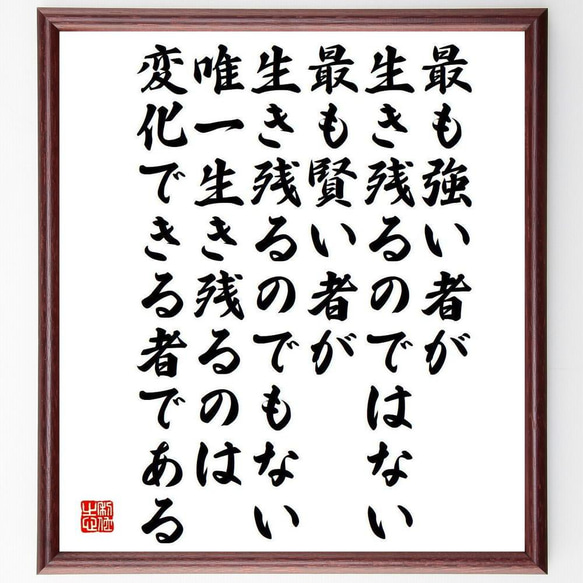 最も強い者が
生き残るのではない
最も賢い者が
生き残るのでもない
唯一生き残るのは
変化できる者である